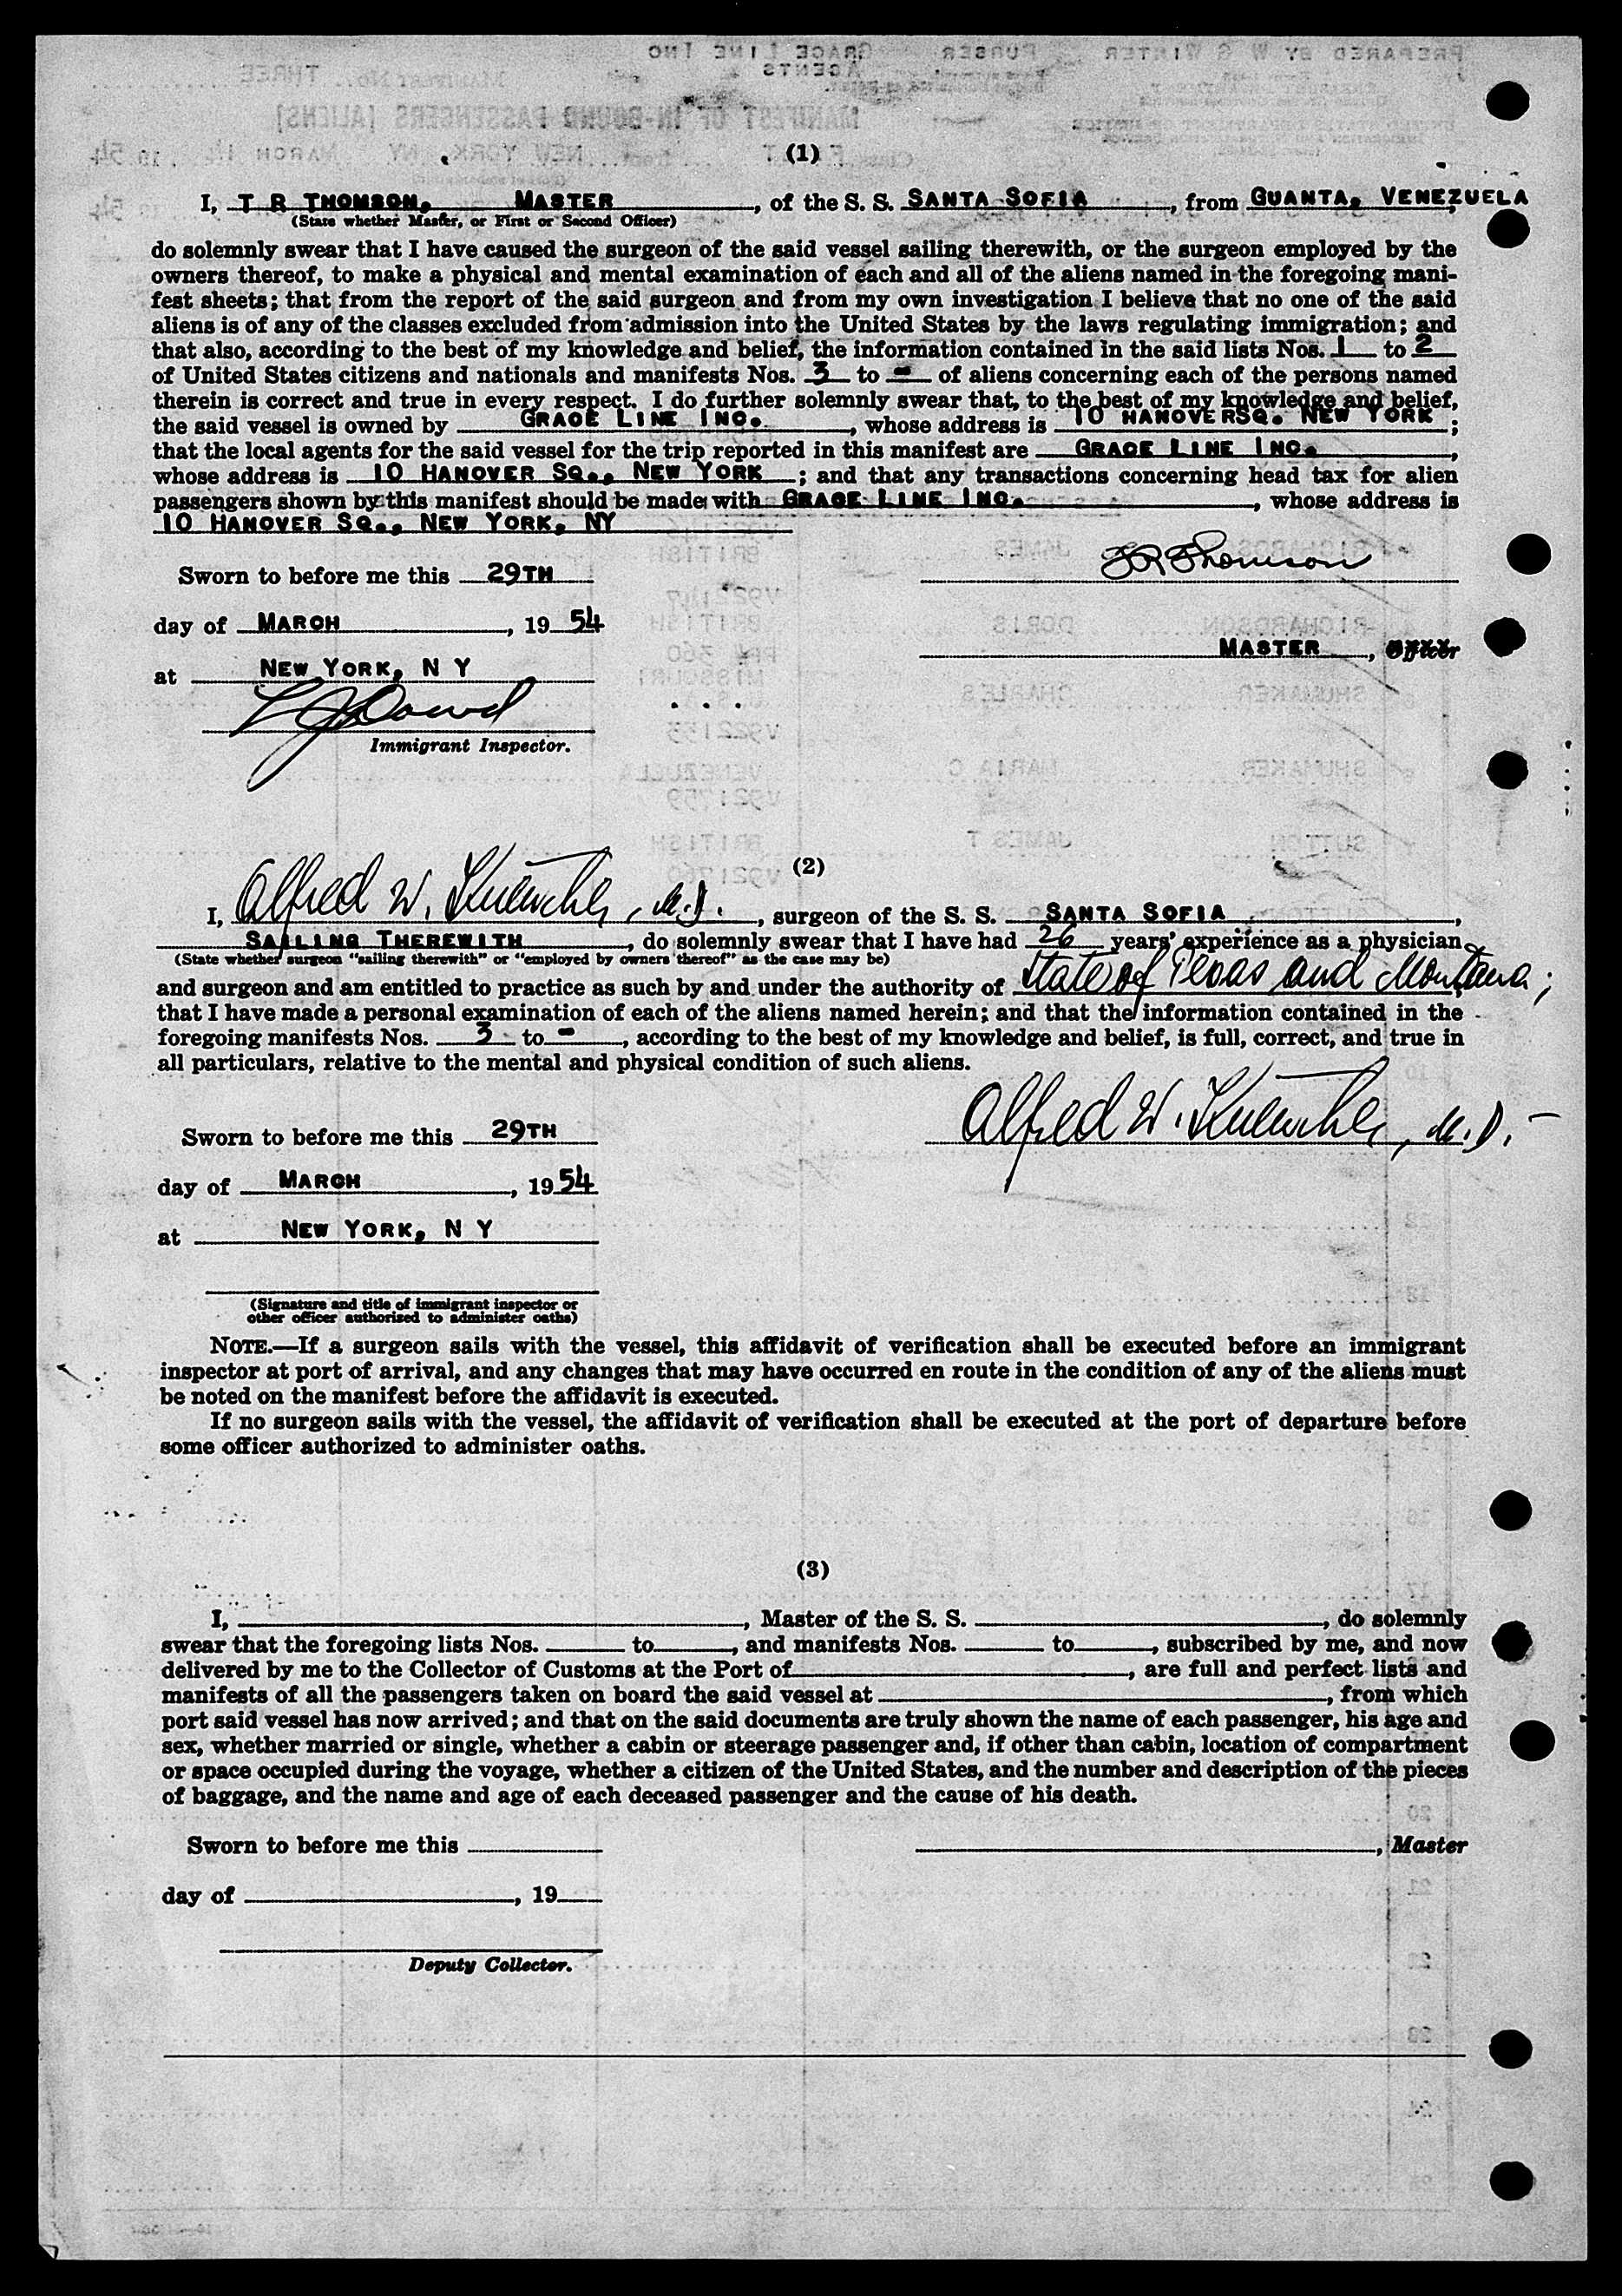 (1)
I, T R THOMSON, MASTER, of the S. S. SANTA SOFIA, from GUANTA, VENEZUELA
(State whether Master, or First or Second Officer)
do solemnly swear that I have caused the surgeon of the said vessel sailing therewith, or the surgeon employed by the
owners thereof, to make a physical and mental examination of each and all of the aliens named in the foregoing mani-
fest sheets; that from the report of the said surgeon and from my own investigation I believe that no one of the said
aliens is of any of the classes excluded from admission into the United States by the laws regulating immigration; and
that also, according to the best of my knowledge and belief, the information contained in the said lists Nos. 1 to 2
of United States citizens and nationals and manifests Nos. 3 to - of aliens concerning each of the persons named
therein is correct and true in every respect. I do further solemnly swear that, to the best of my knowledge and belief,
the said vessel is owned by GRACE LINE INC., whose address is 10 HANOVER SQ. NEW YORK;
that the local agents for the said vessel for the trip reported in this manifest are GRACE LINE INC.,
whose address is 10 HANOVER SQ., NEW YORK; and that any transactions concerning head tax for alien
passengers shown by this manifest should be made with GRACE LINE INC., whose address is
10 HANOVER SQ., NEW YORK, NY
Sworn to before me this 29TH
T R Thomson
day of MARCH, 19 54
MASTER, Officer
at NEW YORK, N Y
Immigrant Inspector.
(2)
I, Alfred W., M.D., surgeon of the S. S. SANTA SOFIA,
SAILING THEREWITH, do solemnly swear that I have had 26 years' experience as a physician
(State whether surgeon "sailing therewith" or "employed by owners thereof" as the case may be)
and surgeon and am entitled to practice as such by and under the authority of State of Texas and Montana;
that I have made a personal examination of each of the aliens named herein; and that the information contained in the
foregoing manifests Nos. 3 to -, according to the best of my knowledge and belief, is full, correct, and true in
all particulars, relative to the mental and physical condition of such aliens.
Alfred W., M.D.
Sworn to before me this 29TH
day of MARCH, 19 54
at NEW YORK, N Y
(Signature and title of immigrant inspector or
other officer authorized to administer oaths)
NOTE.—If a surgeon sails with the vessel, this affidavit of verification shall be executed before an immigrant
inspector at port of arrival, and any changes that may have occurred en route in the condition of any of the aliens must
be noted on the manifest before the affidavit is executed.
If no surgeon sails with the vessel, the affidavit of verification shall be executed at the port of departure before
some officer authorized to administer oaths.
(3)
I, , Master of the S. S. , do solemnly
swear that the foregoing lists Nos. to , and manifests Nos. to , subscribed by me, and now
delivered by me to the Collector of Customs at the Port of , are full and perfect lists and
manifests of all the passengers taken on board the said vessel at , from which
port said vessel has now arrived; and that on the said documents are truly shown the name of each passenger, his age and
sex, whether married or single, whether a cabin or steerage passenger and, if other than cabin, location of compartment
or space occupied during the voyage, whether a citizen of the United States, and the number and description of the pieces
of baggage, and the name and age of each deceased passenger and the cause of his death.
Sworn to before me this
, Master
day of , 19
Deputy Collector.